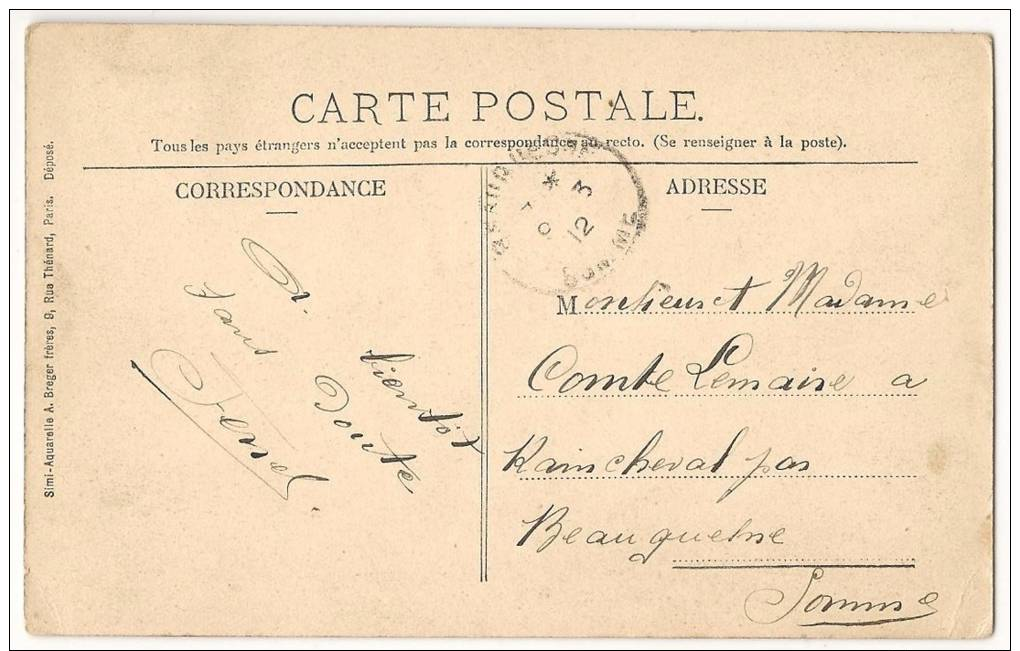 CARTE POSTALE.
Tous les pays étrangers n'acceptent pas la correspondance au recto. (Se renseigner à la poste).
CORRESPONDANCE
A
bientôt
sans
Doute
ADRESSE
Monsieur et Madame
Comte Lemaire a
Raincheval par
Beauquesne
Somme
BEAUQUESNE
7 * 3
12
SOMME
Simi-Aquarelle A. Breger frères, 9, Rue Thénard, Paris. Déposé.